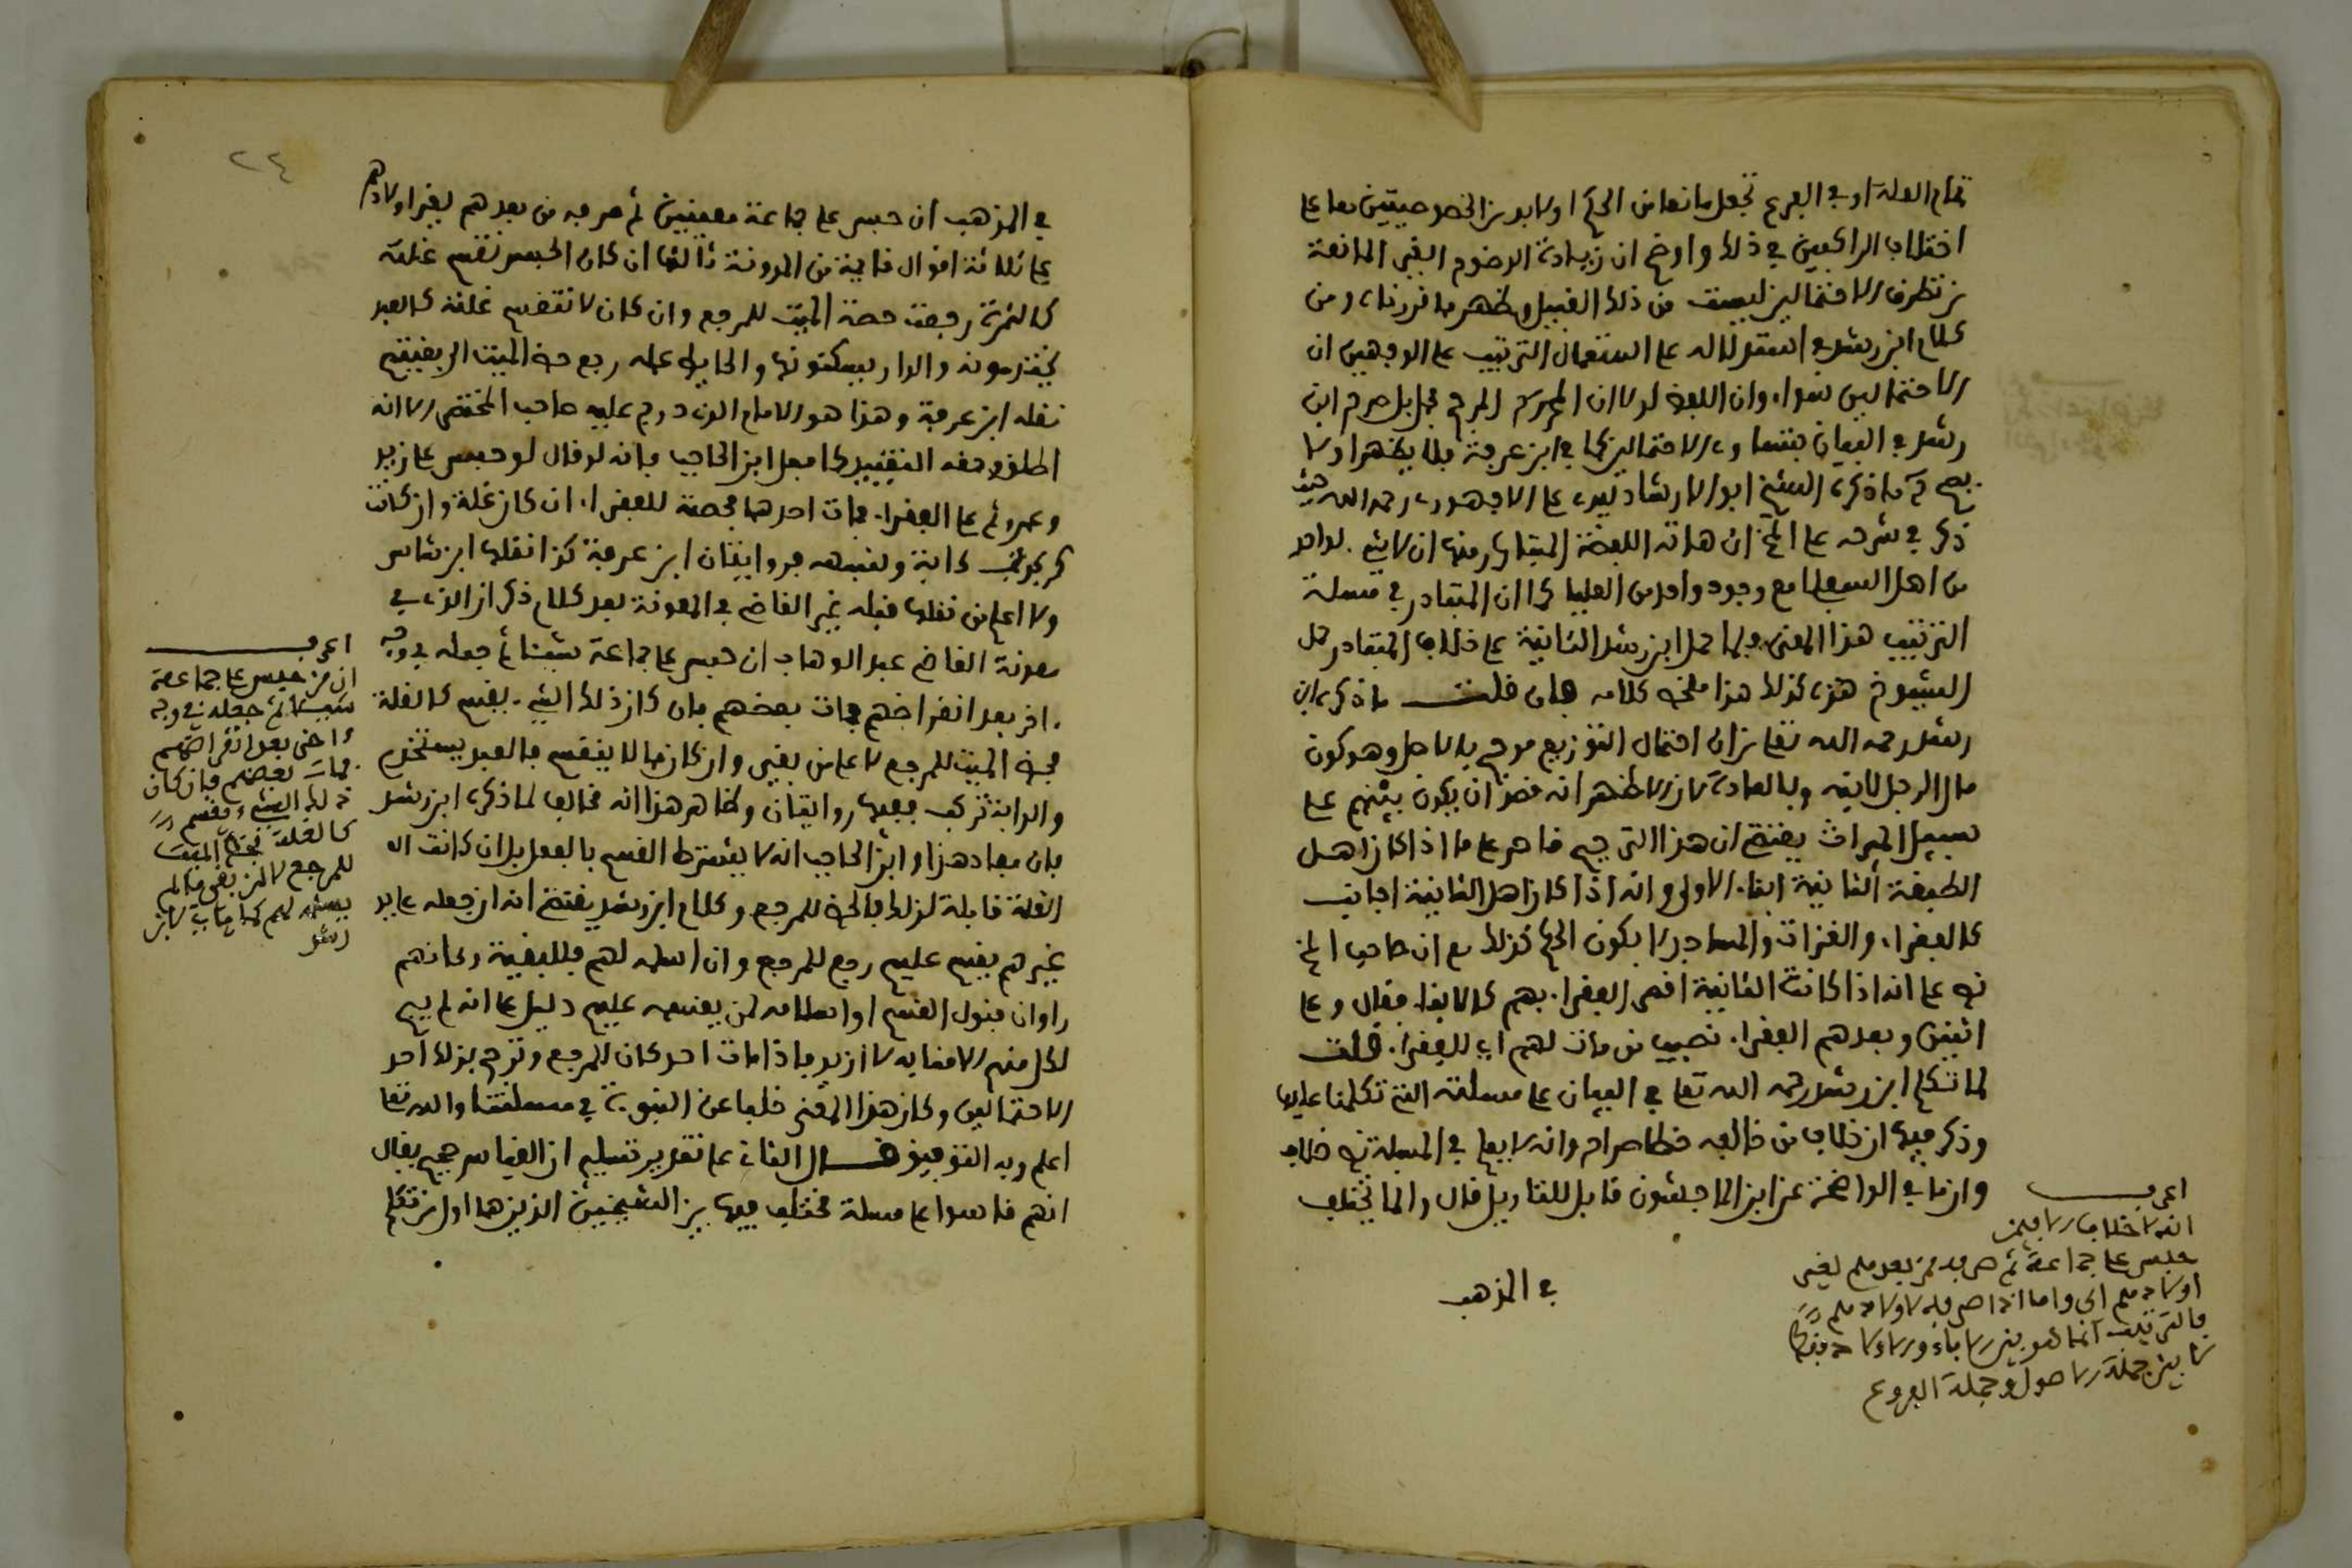 تمام العلة او في الفرع تجعل مانعا من الحكم اولا بد من الخصوصيتين معا على
اختلاف الراكعين في ذلك واوضح ان زيادة الوضوح الغير المانعة
من تطرق الاحتمالين ليست من ذلك القبيل وظهر ما قررناه ومن
كلام ابن رشد في استدلاله على استعمال الترتيب على الوجهين ان
الاحتمالين سواء وان اللفظ لولا ان المحرك المرجح مجمل صرح ابن
رشد في البيان بتساوي الاحتمالين كما في ابن عرفة فلا يظهر اولا
يصح ما ذكره الشيخ ابو الارشاد سيدي علي الاجهوري رحمه الله حيث
ذكر في شرحه على المخ ان هاته اللفظة المتبادر منها ان لا شيء لواحد
من اهل السفلى مع وجود واحد من العليا كما ان المتبادر في مسلة
الترتيب هذا المعنى ولما حمل ابن رشد الثانية على خلاف المتبادر حمل
الشيوخ هذه كذلك هذا ملخص كلامه فان قلت ما ذكره ابن
رشد رحمه الله تعلى من ان احتمال التوزيع مرجح بالاصل وهو كون
مال الرجل لابنه وبالعادة لان الاظهر انه قصد ان يكون بينهم على
سبيل الميراث يقتضي ان هذا الترجيح قاصر على ما اذا كان اهل
الطبقة الثانية ابناء الاولى وانه اذا كان اهل الثانية اجانب
كالفقراء والغزاة والمساجد لا يكون الحكم كذلك مع ان صاحب المخ
نص على انه اذا كانت الثانية اقصى الفقراء بهم كالابناء فقال وعلى
اثنين وبعدهم الفقراء نصيب من مات لهم اي للفقراء قلت
لما تكلم ابن رشد رحمه الله تعلى في البيان على مسلته التي تكلمنا عليها
وذكر فيها ان خلاف من خالفه خطا صراح وانه لا يعلم في المسلة نص خلاف
وان ما في الواضحة عن ابن الماجشون قابل للتاويل قال وانما يختلف
في المذهب
اعرف
انه لا خلاف الا فيمن
حبس على جماعة ثم صرفه من بعدهم لغير
اولادهم اي واما اذا صرفه لاولادهم
فالترتيب انما هو بين الاباء والاولاد فقط
لا بين جملة الاصول وجملة الفروع
٢٤
في المذهب ان حبس على جماعة معينين ثم صرفه من بعدهم لغير اولادهم
على ثلاثة اقوال قائمة من المدونة ثالثها ان كان الحبس تقسم غلته
كالثمرة رجعت حصة الميت للمرجع وان كان لا تنقسم غلته كالعبد
يختدمونه والدار يسكنونها والحايط رجع حظ الميت الى بقيتهم
نقله ابن عرفة وهذا هو الامام الذي درج عليه صاحب المختصر الا انه
اطلق وحقه التقييد كما فعل ابن الحاجب فانه لو قال لو حبس على زيد
وعمرو ثم على الفقراء فمات احدهما فحصته للفقراء ان كان غلة وان كانت
كركوب دابة وشبهه فروايتان ابن عرفة كذا نقلها ابن شاس
ولا اعلم من نقلها قبله غير القاضي في المعونة بعد كلام ذكر ان الذي في
معونة القاضي عبد الوهاب ان حبس على جماعة شيئا ثم جعله في وجه
اخر بعد انقراضهم فمات بعضهم فان كان ذلك الشيء يقسم كالغلة
فحظ الميت للمرجع لا على من بقي وان كان مما لا ينقسم فالعبد يستخدم
والدابة تركب ففيها روايتان وظاهر هذا انه مخالف لما ذكره ابن رشد
فان مفاد هذا وابن الحاجب انه لا يشترط القسم بالفعل بل ان كانت
الغلة قابلة لذلك فالحظ للمرجع وكلام ابن رشد يقتضي انه ان جعله على يد
غيرهم يقسم عليهم رجع للمرجع وان اسلمه لهم فللبقية وكانهم
راوا ان قبول القسم او اسلامه لمن يقسمه عليهم دليل على انه لم يبح
لكل منهم الا منابه لا ازيد فاذا مات احد كان للمرجع وترجح بذلك احد
الاحتمالين وكان هذا المعنى خليا عن الثبوت في مسلتنا والله تعلى
اعلم وبه التوفيق السؤال الثاني على تقدير تسليم ان القياس صحيح يقال
انهم قاسوا على مسلة مختلف فيها بين الشيخين الذين هما اول من تكلم
اعرف
ان من حبس على جماعة
شيئا ثم جعله في وجه
اخر بعد انقراضهم
فمات بعضهم فان كان
ذلك الشيء يقسم
كالغلة فحظ الميت
للمرجع لا لمن بقي ما لم
يسلمه لهم كما في لابن
رشد